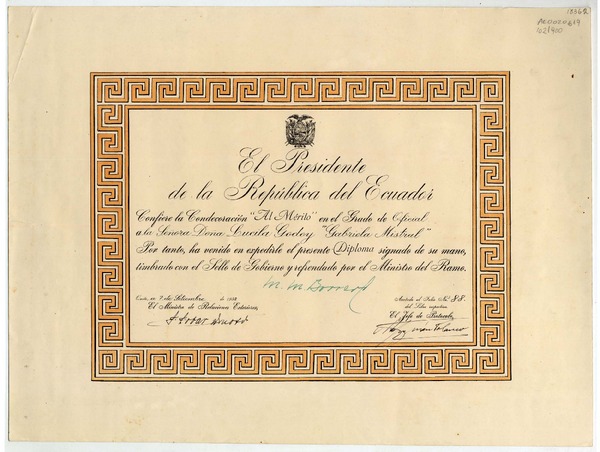 AE0020619
102/900
El Presidente
de la República del Ecuador
Confiere la Condecoración "Al Mérito" en el Grado de Oficial
a la Señora Doña Lucila Godoy "Gabriela Mistral"
Por tanto, ha venido en expedirle el presente Diploma signado de su mano,
timbrado con el Sello de Gobierno y refrendado por el Ministro del Ramo.
Quito, a 7 de Setiembre de
Anotado al Folio No. 88.
El Ministro de Relaciones Exteriores,
del Libro respectivo
El Jefe de